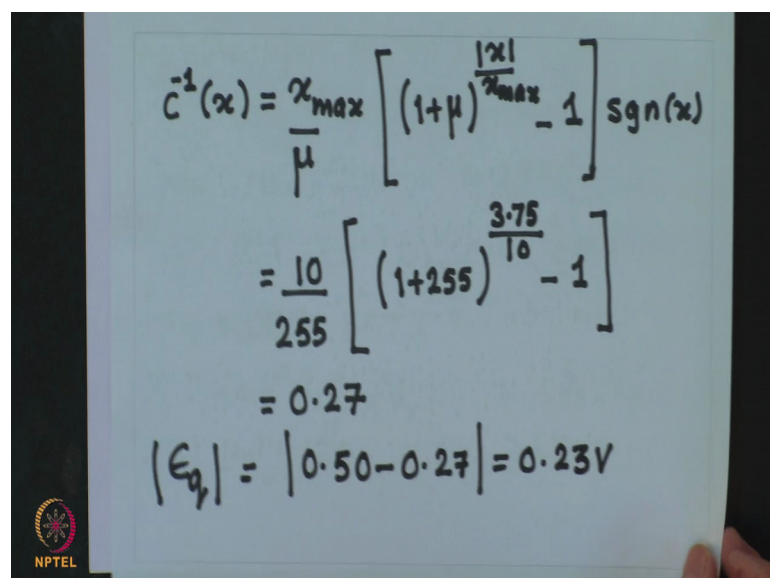 C⁻¹(x) = x_max/μ [(1+μ)^(|x|/x_max) - 1] sgn(x)
= 10/255 [(1+255)^(3.75/10) - 1]
= 0.27
|ϵ_q| = |0.50-0.27| = 0.23V
NPTEL